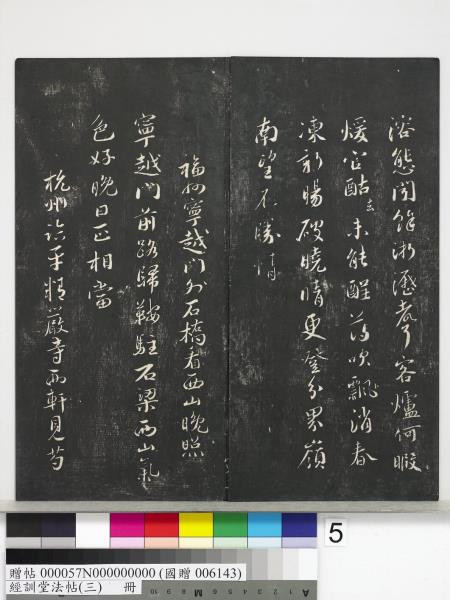 溶態聞餘淅瀝聲客爐何暇
煖官酤去未能醒薄吹飄消春
凍新暘破曉晴更登分界嶺
南望不勝情
福州寧越門外石橋看西山晚照
寧越門前路歸鞍駐石梁西山氣
色好晚日正相當
杭州臨平精嚴寺西軒見芍
5
贈帖 000057N000000000 (國贈 006143)
經訓堂法帖(三) 冊